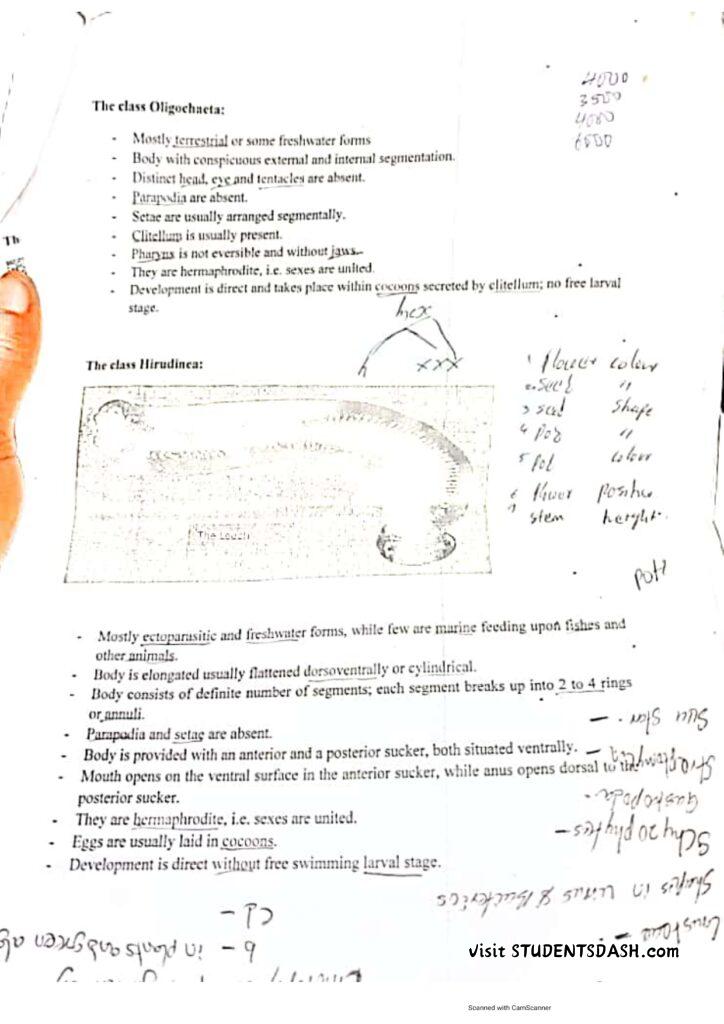 4000
3500
The class Oligochaeta:
4000
6500
- Mostly terrestrial or some freshwater forms
- Body with conspicuous external and internal segmentation.
- Distinct head, eye and tentacles are absent.
- Parapodia are absent.
- Setae are usually arranged segmentally.
- Clitellum is usually present.
Th
- Pharynx is not eversible and without jaws.
- They are hermaphrodite, i.e. sexes are united.
- Development is direct and takes place within cocoons secreted by clitellum; no free larval
stage.
hex
The class Hirudinea:
h xxx
1 Flower colour
2 seed "
3 seed shape
4 Pod "
5 Pod colour
6 flower position
7 stem height.
The Leech
- Mostly ectoparasitic and freshwater forms, while few are marine feeding upon fishes and
other animals.
- Body is elongated usually flattened dorsoventrally or cylindrical.
- Body consists of definite number of segments; each segment breaks up into 2 to 4 rings
or annuli.
- Parapodia and setae are absent.
- Body is provided with an anterior and a posterior sucker, both situated ventrally.
- Mouth opens on the ventral surface in the anterior sucker, while anus opens dorsal to the
posterior sucker.
- They are hermaphrodite, i.e. sexes are united.
- Eggs are usually laid in cocoons.
- Development is direct without free swimming larval stage.
Gastropoda -
Shapes in virus & Bacteria
b - in plants and green
visit STUDENTSDASH.com
Scanned with CamScanner